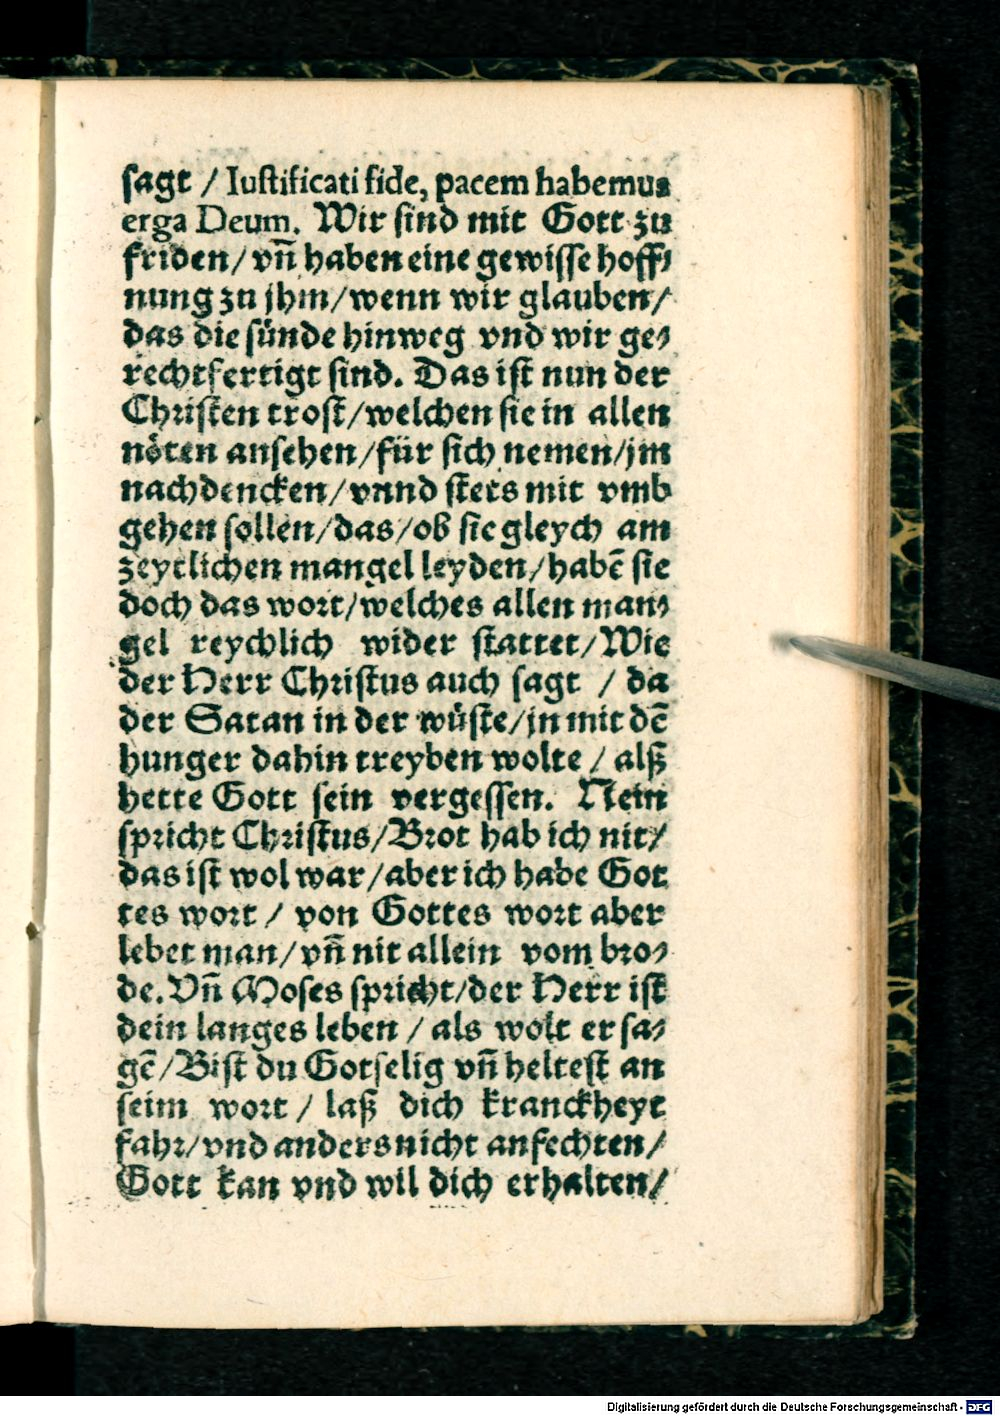 sagt / Iustificati fide, pacem habemus
erga Deum. Wir sind mit Gott zu
friden / vñ haben eine gewisse hoff⸗
nung zu jhm / wenn wir glauben /
das die sünde hinweg vnd wir ge⸗
rechtfertigt sind. Das ist nun der
Christen trost / welchen sie in allen
nöten ansehen / für sich nemen / jm
nachdencken / vnnd stets mit vmb
gehen sollen / das / ob sie gleych am
zeytlichen mangel leyden / habē sie
doch das wort / welches allen man⸗
gel reychlich wider stattet / Wie
der Herr Christus auch sagt / da
der Satan in der wüste / jn mit dē
hunger dahin treyben wolte / alß
hette Gott sein vergessen. Nein
spricht Christus / Brot hab ich nit /
das ist wol war / aber ich habe Got
tes wort / von Gottes wort aber
lebet man / vñ nit allein vom bro⸗
de. Vñ Moses spricht / der Herr ist
dein langes leben / als wolt er sa⸗
gē / Bist du Gotselig vñ heltest an
seim wort / laß dich kranckheyt
fahr / vnd anders nicht anfechten /
Gott kan vnd wil dich erhalten /
Digitalisierung gefördert durch die Deutsche Forschungsgemeinschaft - DFG